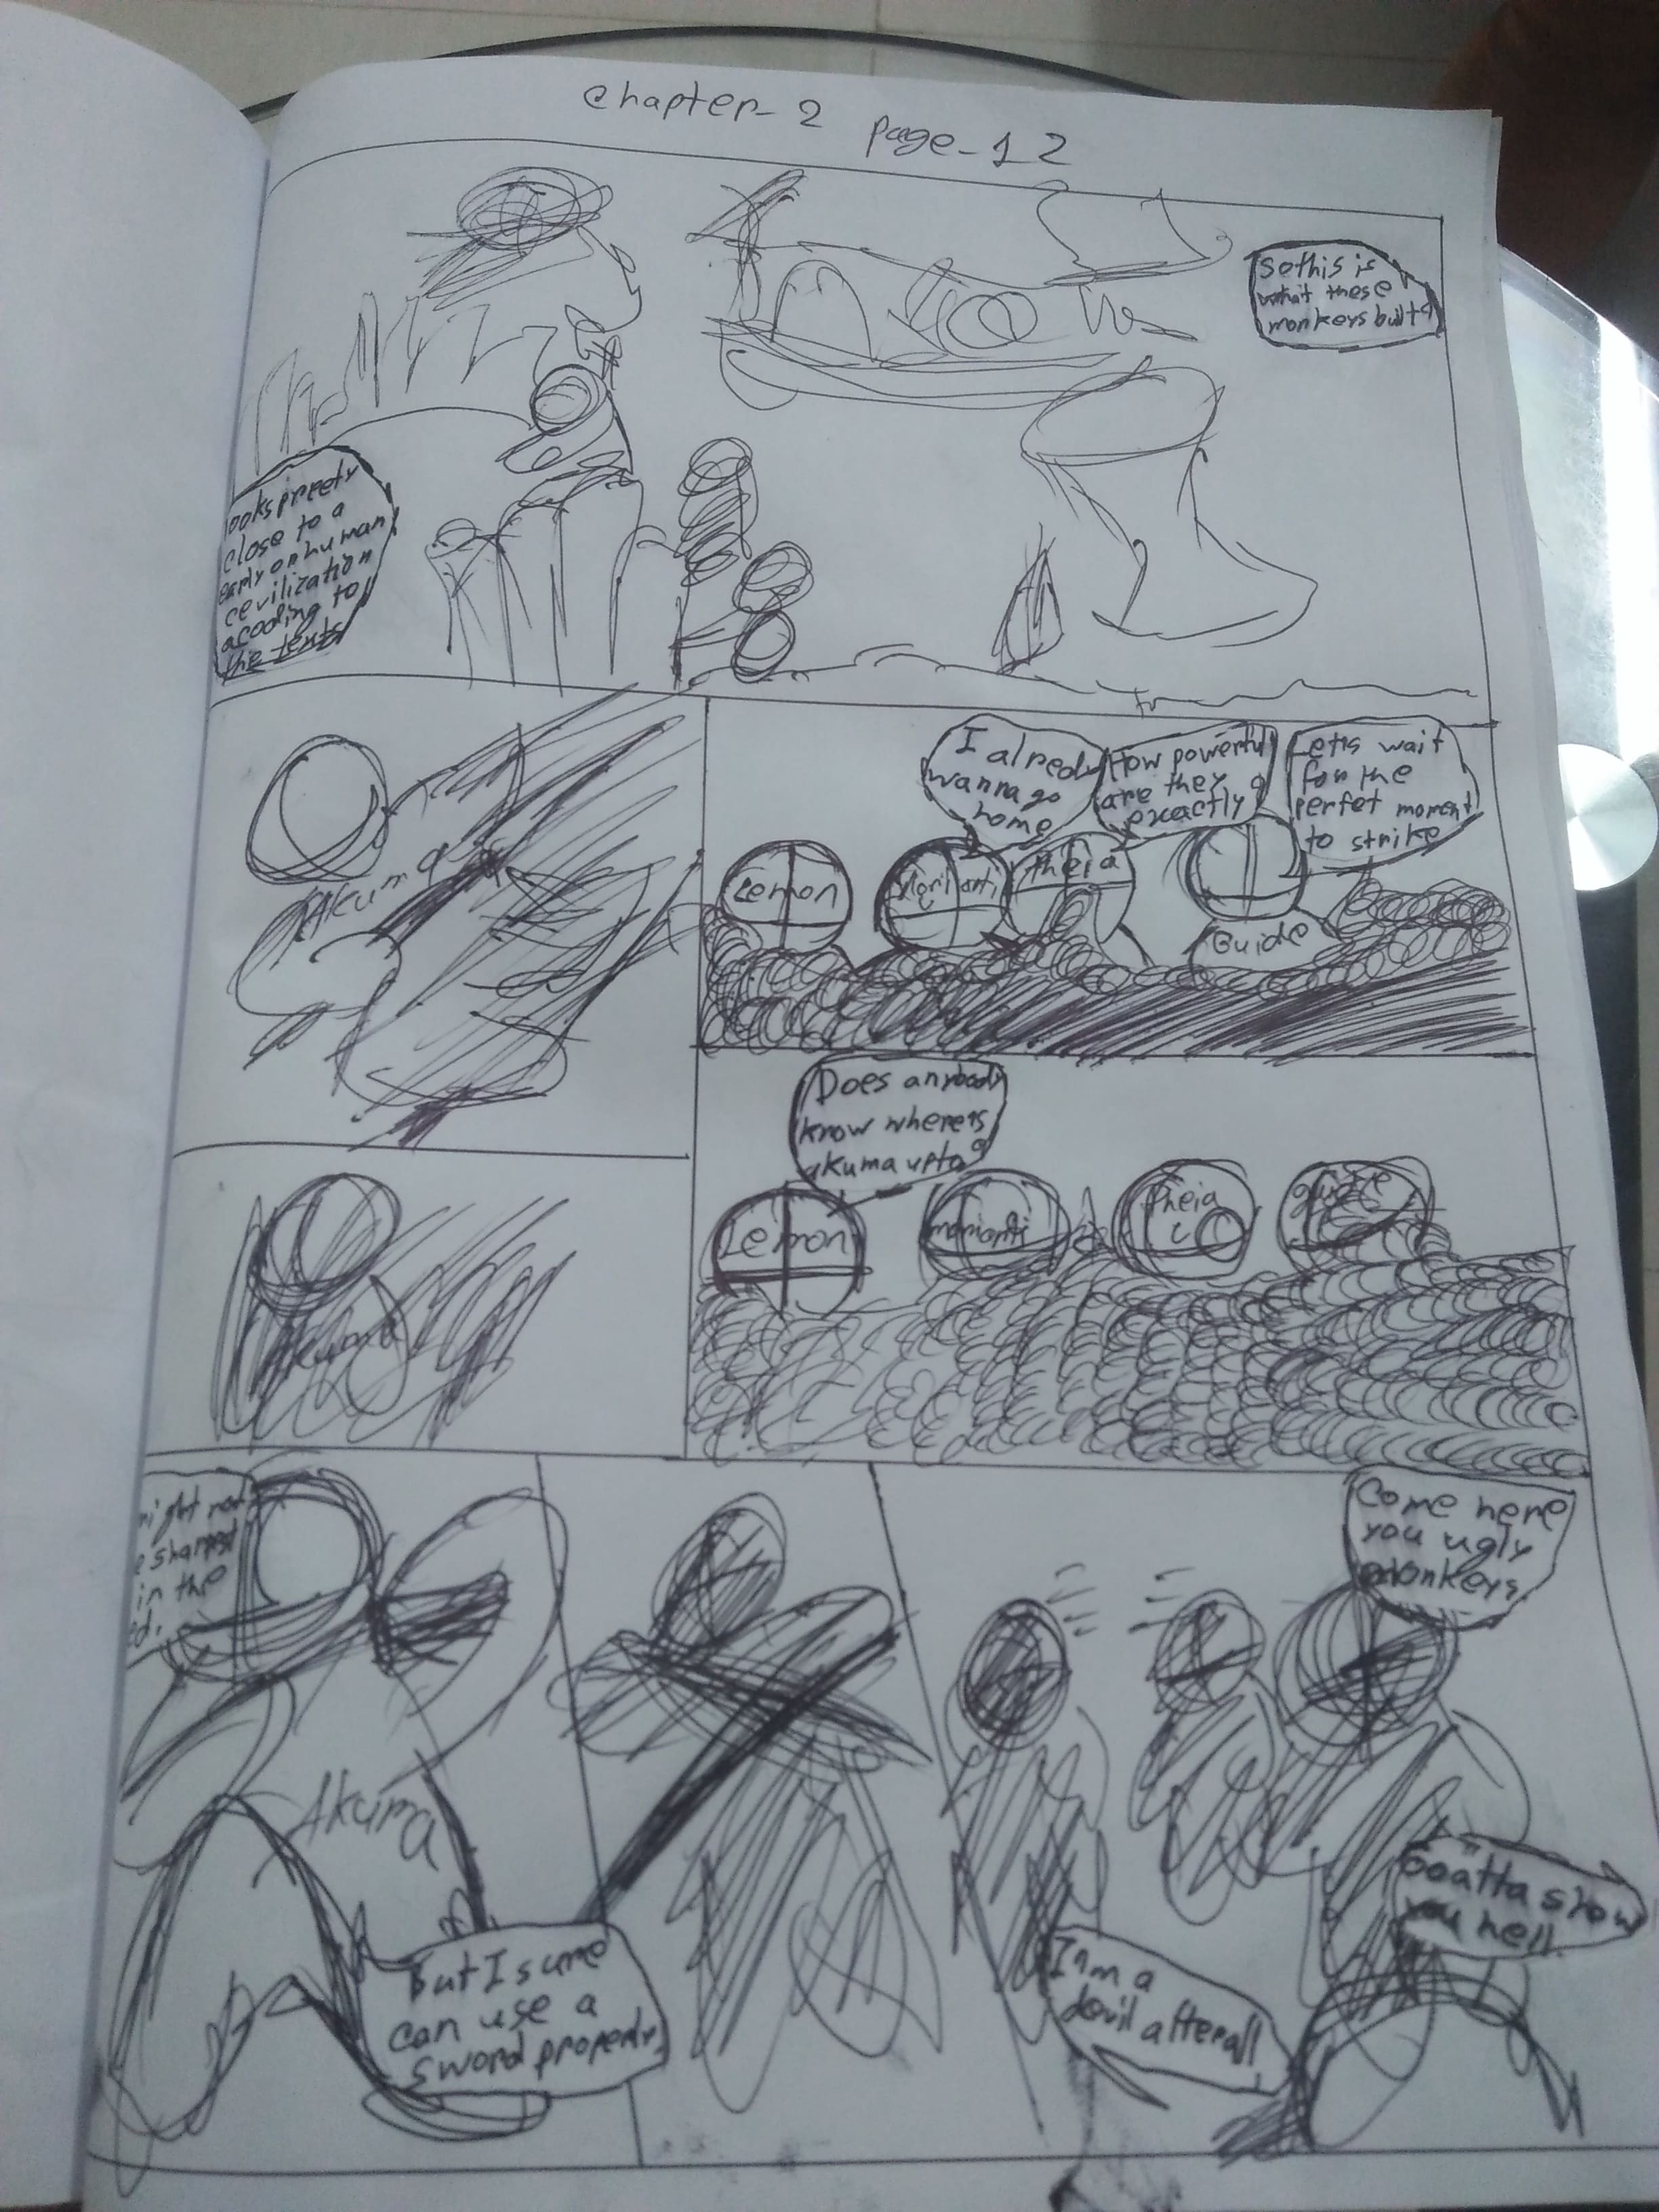 chapter-2 page-12
So this is
what these
monkeys built?
ooks preety
close to a
early on human
cevilization
acoding to
the tents
Akuma
I alredy
wanna go
home
How powerful
are they
exactly?
Let's wait
for the
perfet moment
to strike
Lemon
theia
Guide
Does anybody
know where's
akuma upto?
Lemon
theia
guide
Akuma
ight not
e sharpest
in the
ed.
Akuma
But I sure
can use a
sword properly
Come here
you ugly
monkeys
Gaatta show
you hell.
I'am a
devil afterall